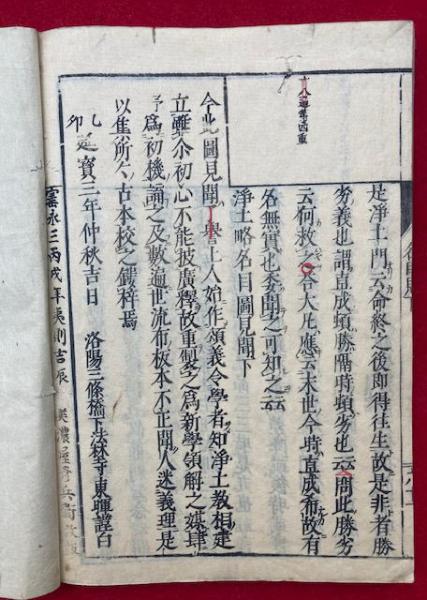 是淨土門云命終之後即得往生故是非者勝
劣義也謂直成頓勝隔時頓劣也云問此勝劣
云何救之合大片應云末世今時直成希故有
名無實也委聞之可知之云
淨土略名目圖見聞下
今此圖見聞譽上人始作領義令學者知淨土教相建
立雖尒初心不能披廣釋故重製之為新學領解之媒肆
予為初機誦之及數遍世流布板本不正聞人迷義理是
以集所々古本校之鋟梓焉
乙卯 延寶三年仲秋吉日 洛陽三條橋下法林寺東暉謹白
寳永三丙戌年夷則吉辰